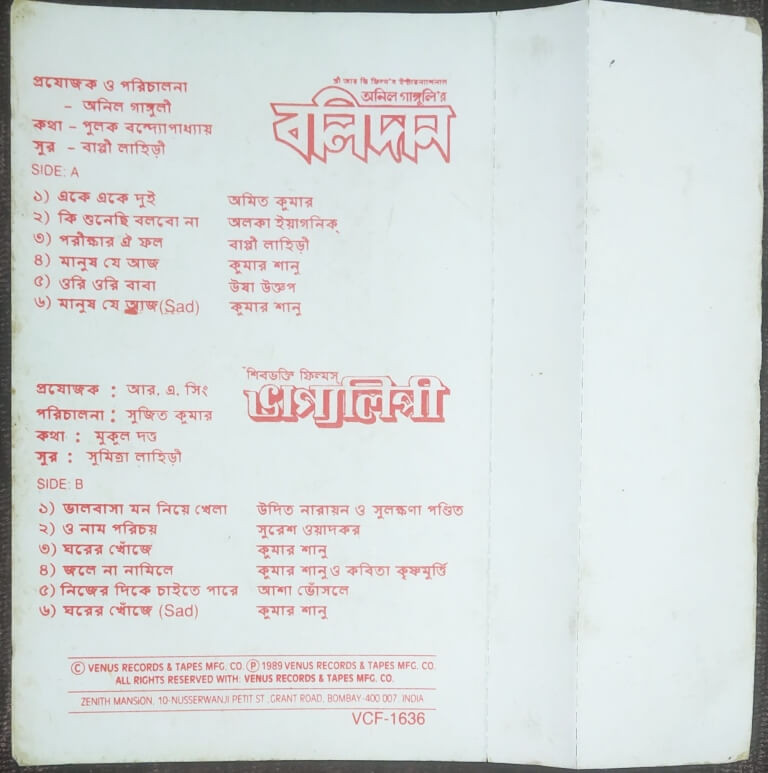 শ্রী আর ভি ফিল্ম'স ইন্টারন্যাশনাল
অনিল গাঙ্গুলি'র
বলিদান
প্রযোজক ও পরিচালনা
– অনিল গাঙ্গুলী
কথা – পুলক বন্দ্যোপাধ্যায়
সুর – বাপ্পী লাহিড়ী
SIDE: A
১) একে একে দুই অমিত কুমার
২) কি শুনেছি বলবো না অলকা ইয়াগনিক্
৩) পরীক্ষার ঐ ফল বাপ্পী লাহিড়ী
৪) মানুষ যে আজ কুমার শানু
৫) ওরি ওরি বাবা উষা উত্থুপ
৬) মানুষ যে আজ (Sad) কুমার শানু
শিবভক্তি ফিল্মস্
ভাগ্যলিপী
প্রযোজক : আর. এ. সিং
পরিচালনা : সুজিত কুমার
কথা : মুকুল দত্ত
সুর : সুমিত্রা লাহিড়ী
SIDE: B
১) ভালবাসা মন নিয়ে খেলা উদিত নারায়ন ও সুলক্ষণা পণ্ডিত
২) ও নাম পরিচয় সুরেশ ওয়াদকর
৩) ঘরের খোঁজে কুমার শানু
৪) জলে না নামিলে কুমার শানু ও কবিতা কৃষ্ণমুর্ত্তি
৫) নিজের দিকে চাইতে পারে আশা ভোঁসলে
৬) ঘরের খোঁজে (Sad) কুমার শানু
© VENUS RECORDS & TAPES MFG. CO. ℗ 1989 VENUS RECORDS & TAPES MFG. CO.
ALL RIGHTS RESERVED WITH: VENUS RECORDS & TAPES MFG. CO.
ZENITH MANSION, 10-NUSSERWANJI PETIT ST., GRANT ROAD, BOMBAY-400 007. INDIA
VCF-1636